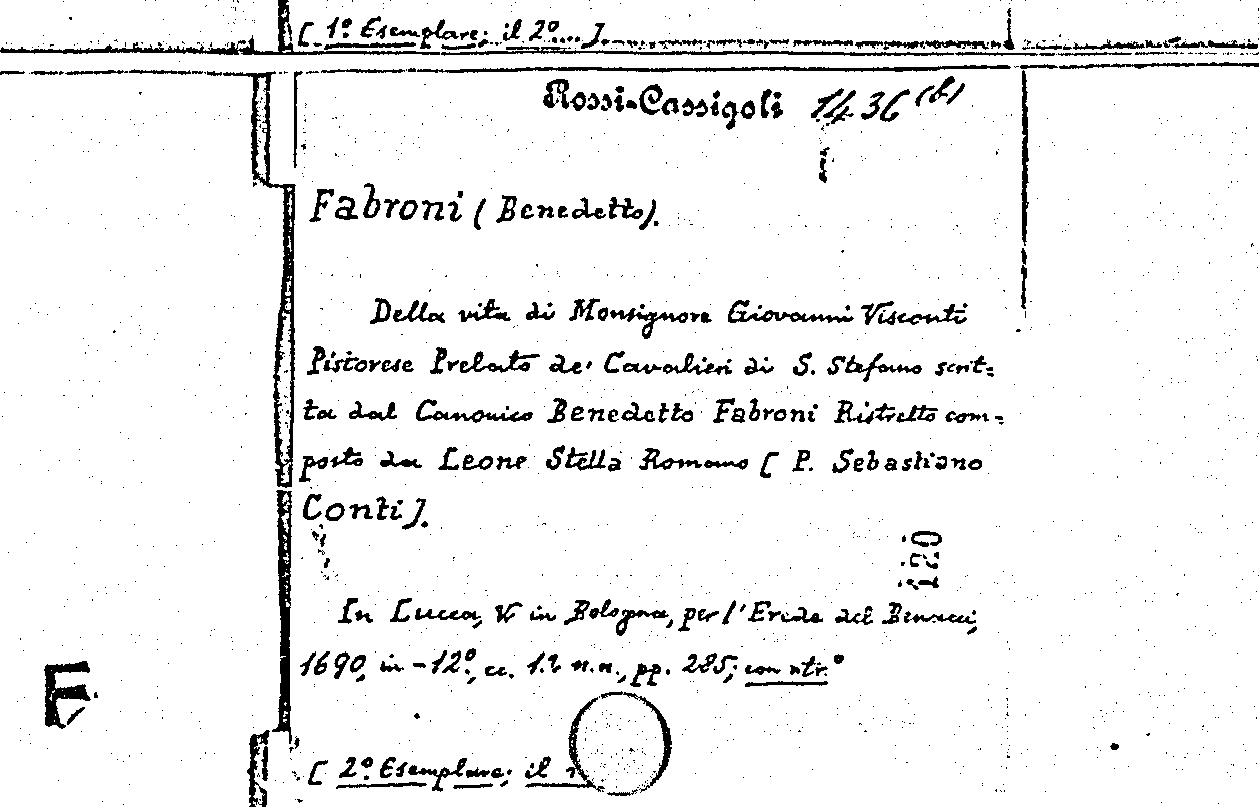 [ 1º. Esemplare; il 2º.... ].
Rossi-Cassigoli 1436 (b)
Fabroni ( Benedetto).
Della vita di Monsignore Giovanni Visconti
Pistorese Prelato de' Cavalieri di S. Stefano scrit-
ta dal Canonico Benedetto Fabroni Ristretto com-
posto da Leone Stella Romano [ P. Sebastiano
Conti ].
120
In Lucca, & in Bologna, per l'Erede del Benacci,
1690, in-12º., cc. n.n., pp. 285; con ntr.º
F
[ 2º. Esemplare; il